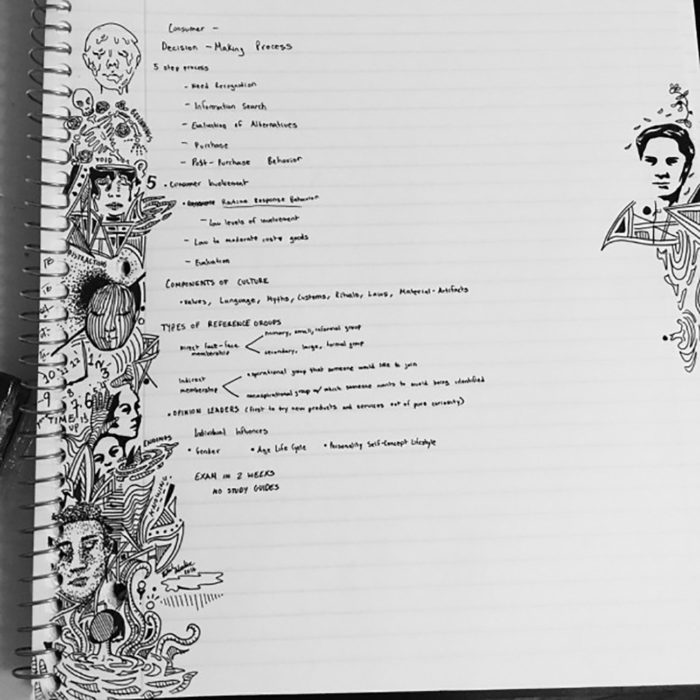 Consumer -
Decision - Making Process
5 step process
- Need Recognition
- Information Search
- Evaluation of Alternatives
- Purchase
- Post-Purchase Behavior
5 • Consumer Involvement
• Routine Response Behavior
- Low levels of involvement
- Low to moderate cost goods
- Evaluation
COMPONENTS OF CULTURE
• Values, Language, Myths, Customs, Rituals, Laws, Material-Artifacts
TYPES OF REFERENCE GROUPS
Direct face-face membership
primary, small, informal group
secondary, large, formal group
Indirect membership
• aspirational group that someone would like to join
nonaspirational group w/ which someone wants to avoid being identified
• OPINION LEADERS (first to try new products and services out of pure curiosity)
Individual Influences
• Gender • Age Life Cycle • Personality Self-Concept Lifestyle
EXAM IN 2 WEEKS
NO STUDY GUIDES
BEGINNINGS
VOID
DISTRACTIONS
10 11 12 1 2 3
9 8 7 6
TIME IS UP
ENDINGS
2016